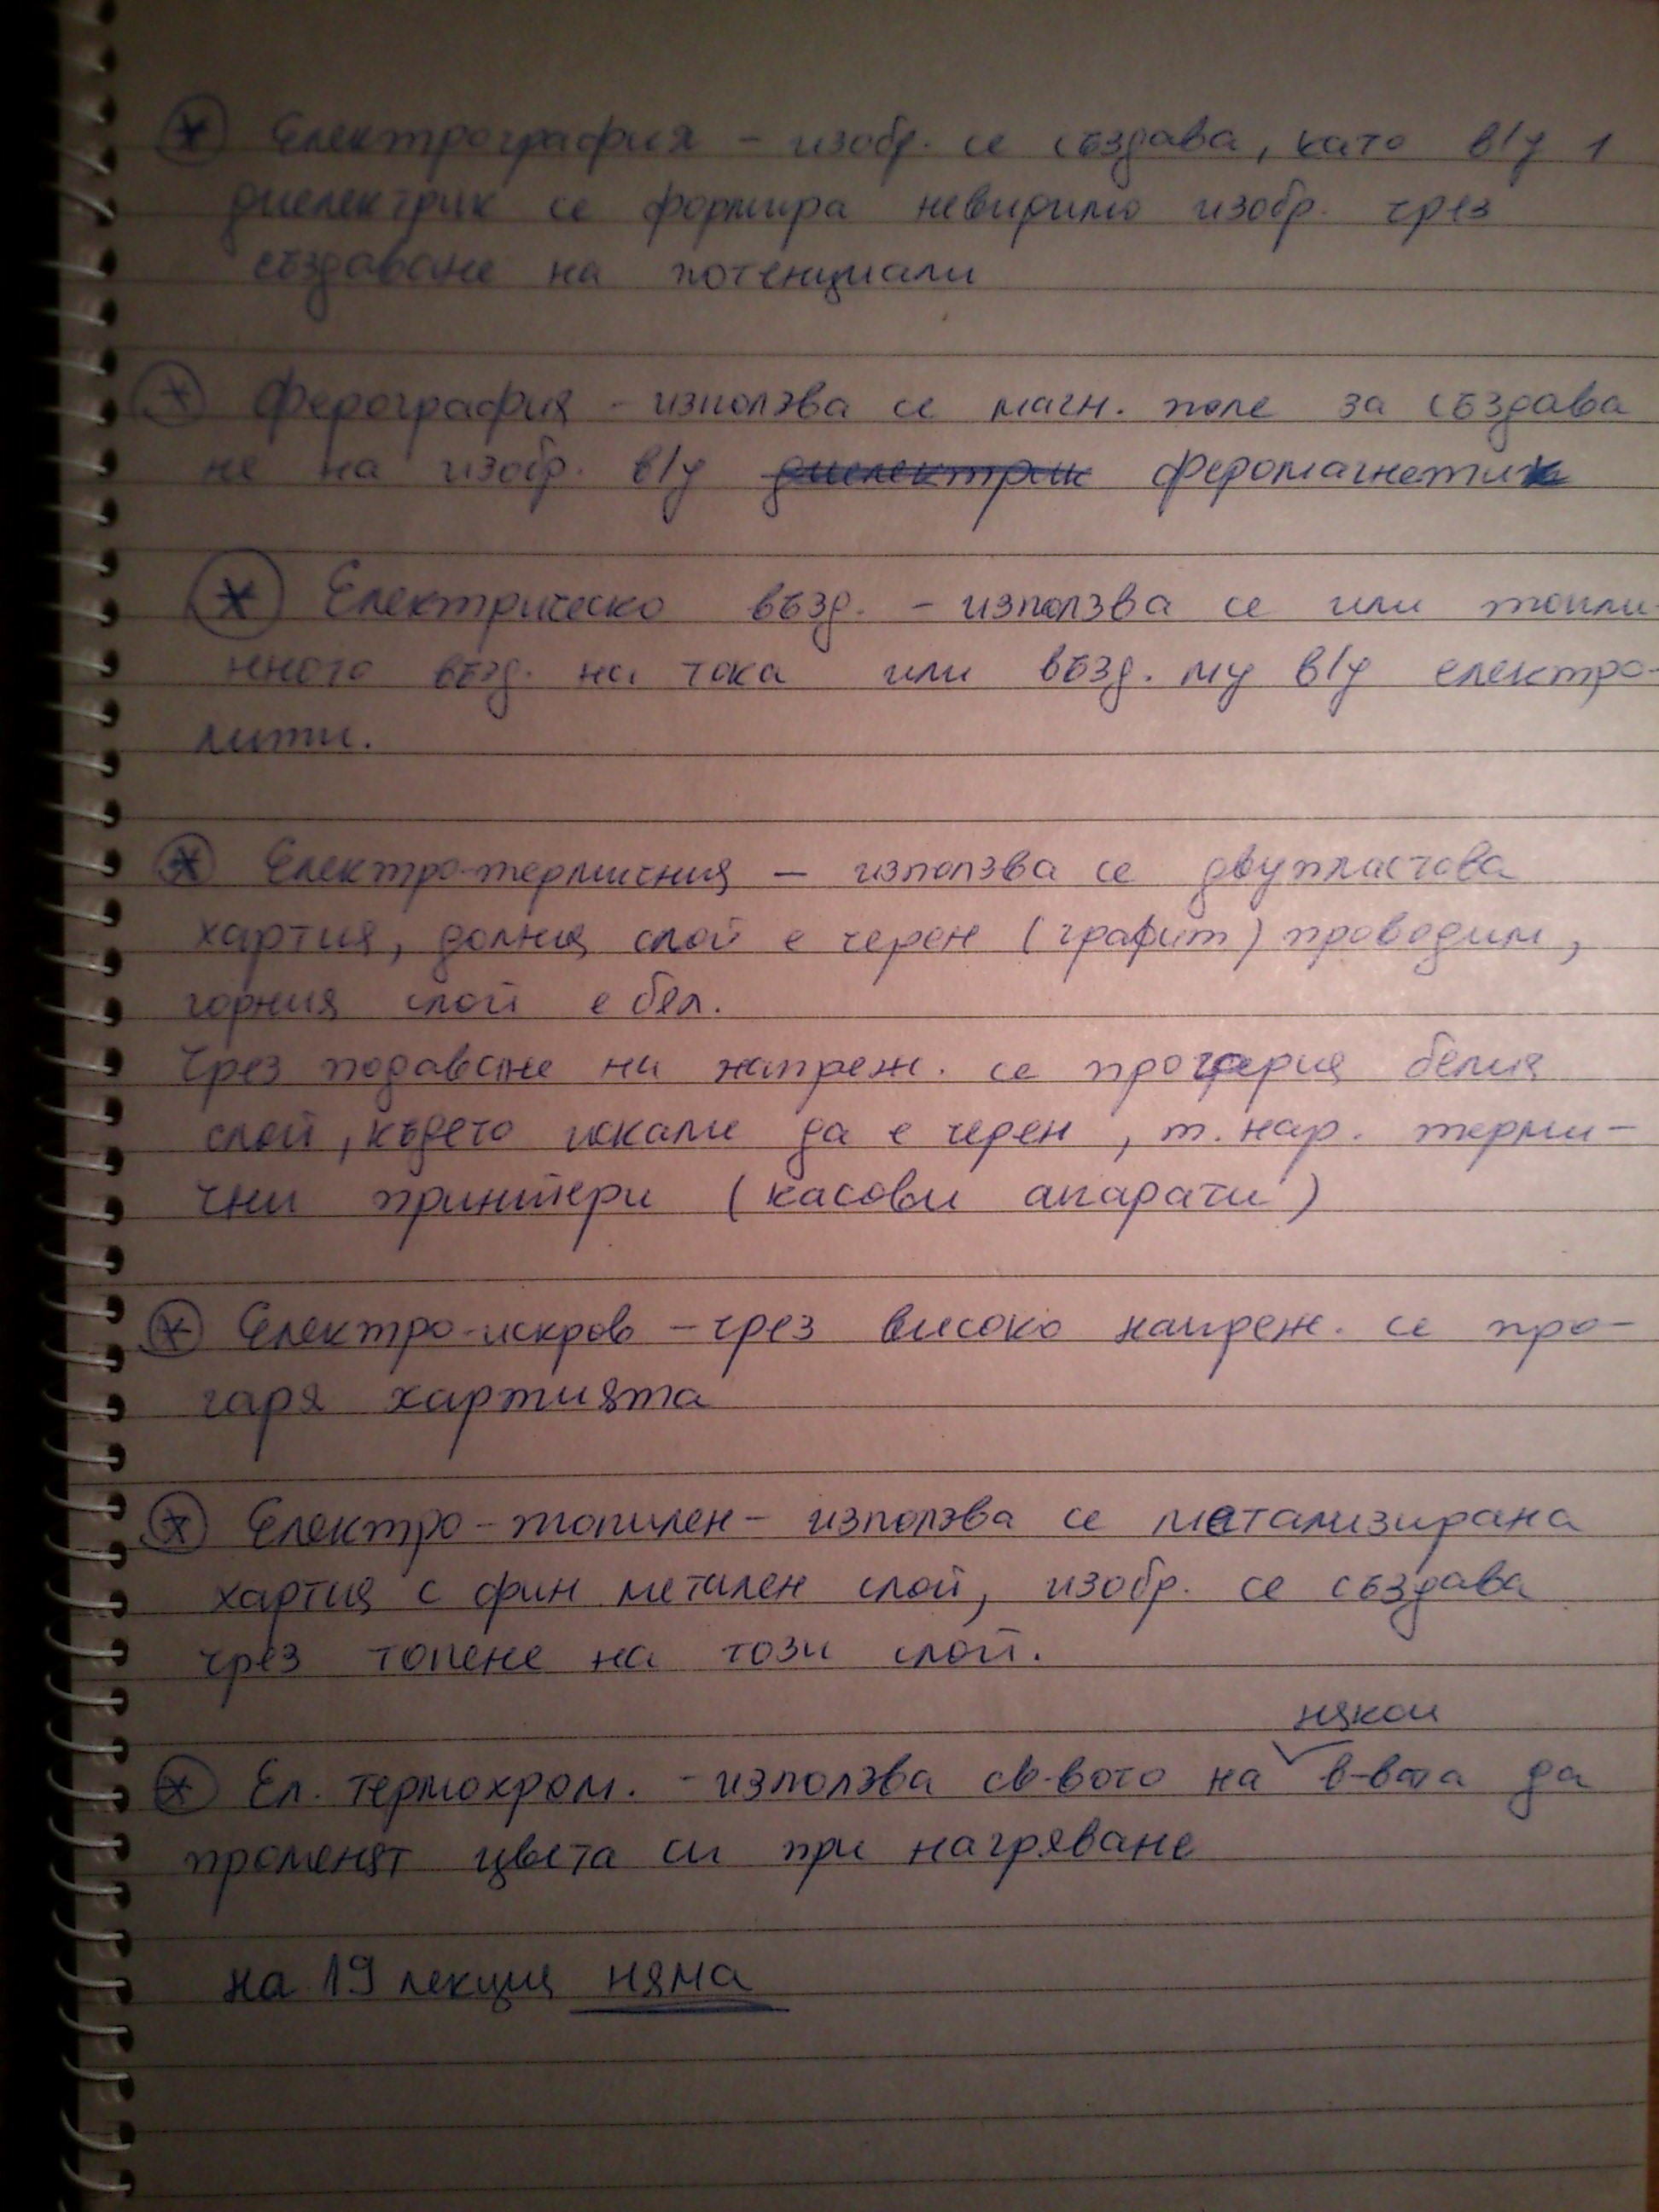 * Електрография - изобр. се създава, като в/у 1
диелектрик се формира невидимо изобр. чрез
създаване на потенциали
* Ферография - използва се магн. поле за създава
не на изобр. в/у диелектрик феромагнетик
* Електрическо възд. - използва се или топли-
нното възд. на тока или възд. му в/у електро-
лити.
* Електро-термичния - използва се двупластова
хартия, долния слой е черен (графит) проводим,
горния слой е бял.
Чрез подаване на напреж. се прогаря белия
слой, където искаме да е черен, т. нар. терми-
чни принтери (касови апарати)
* Електро-искров - чрез високо напреж. се про-
гаря хартията
* Електро-топилен - използва се метализирана
хартия с фин метален слой, изобр. се създава
чрез топене на този слой.
някои
* Ел. термохром. - използва св-вото на в-вота да
променят цвета си при нагряване
на 19 лекция няма